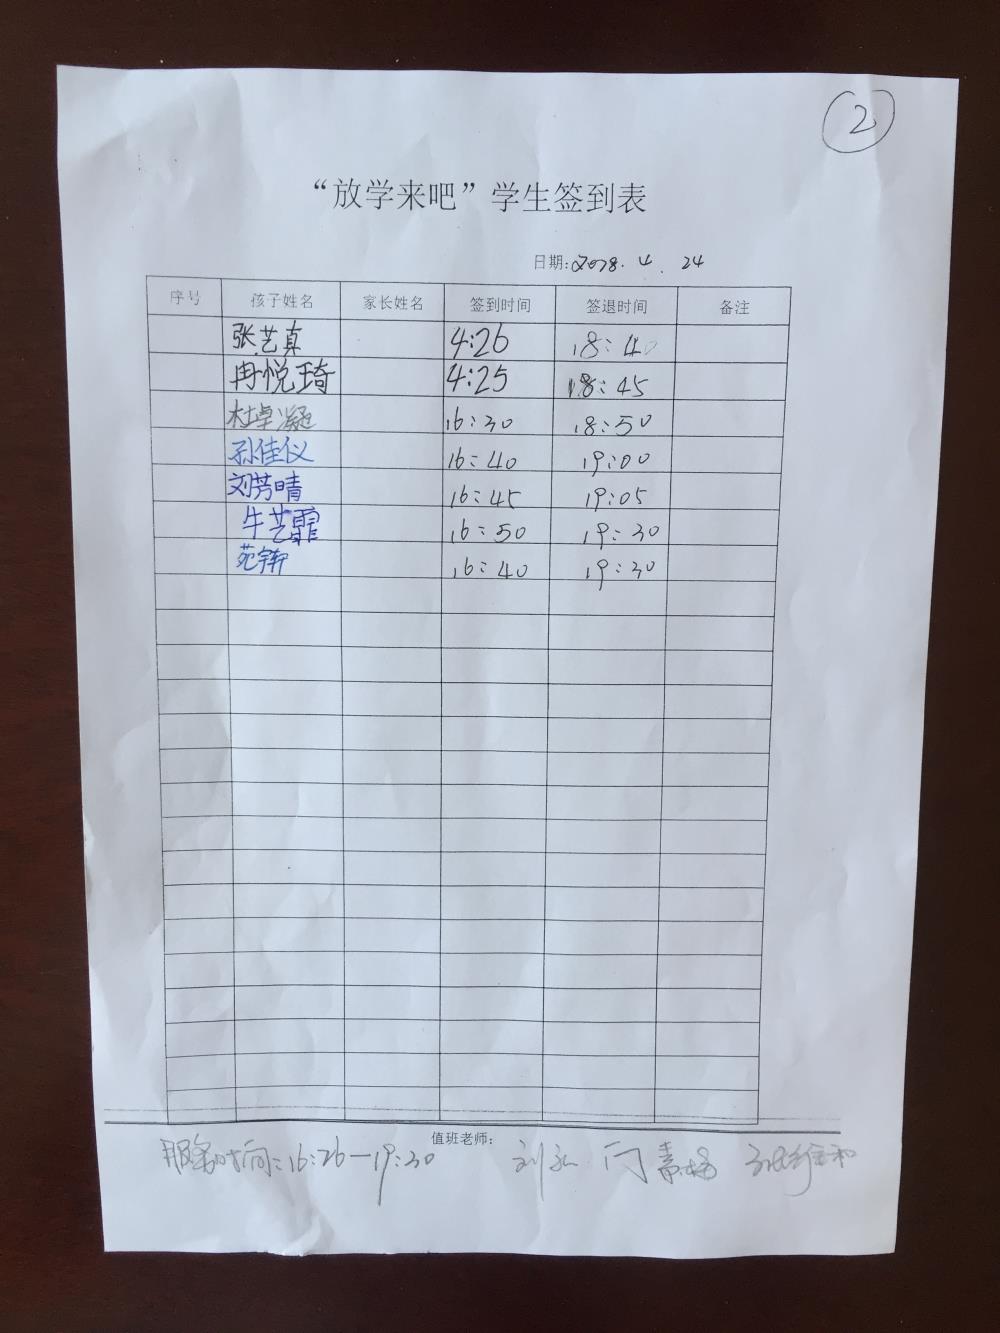 2
“放学来吧”学生签到表
日期:2018.4.24
序号 孩子姓名 家长姓名 签到时间 签退时间 备注
张艺真 4:26 18:40
冉悦琦 4:25 18:45
杜卓凝 16:30 18:50
孙佳仪 16:40 19:00
刘芳晴 16:45 19:05
牛艺霏 16:50 19:30
苑 16:40 19:30
值班老师:
服务时间:16:26—19:30 刘 闫素梅